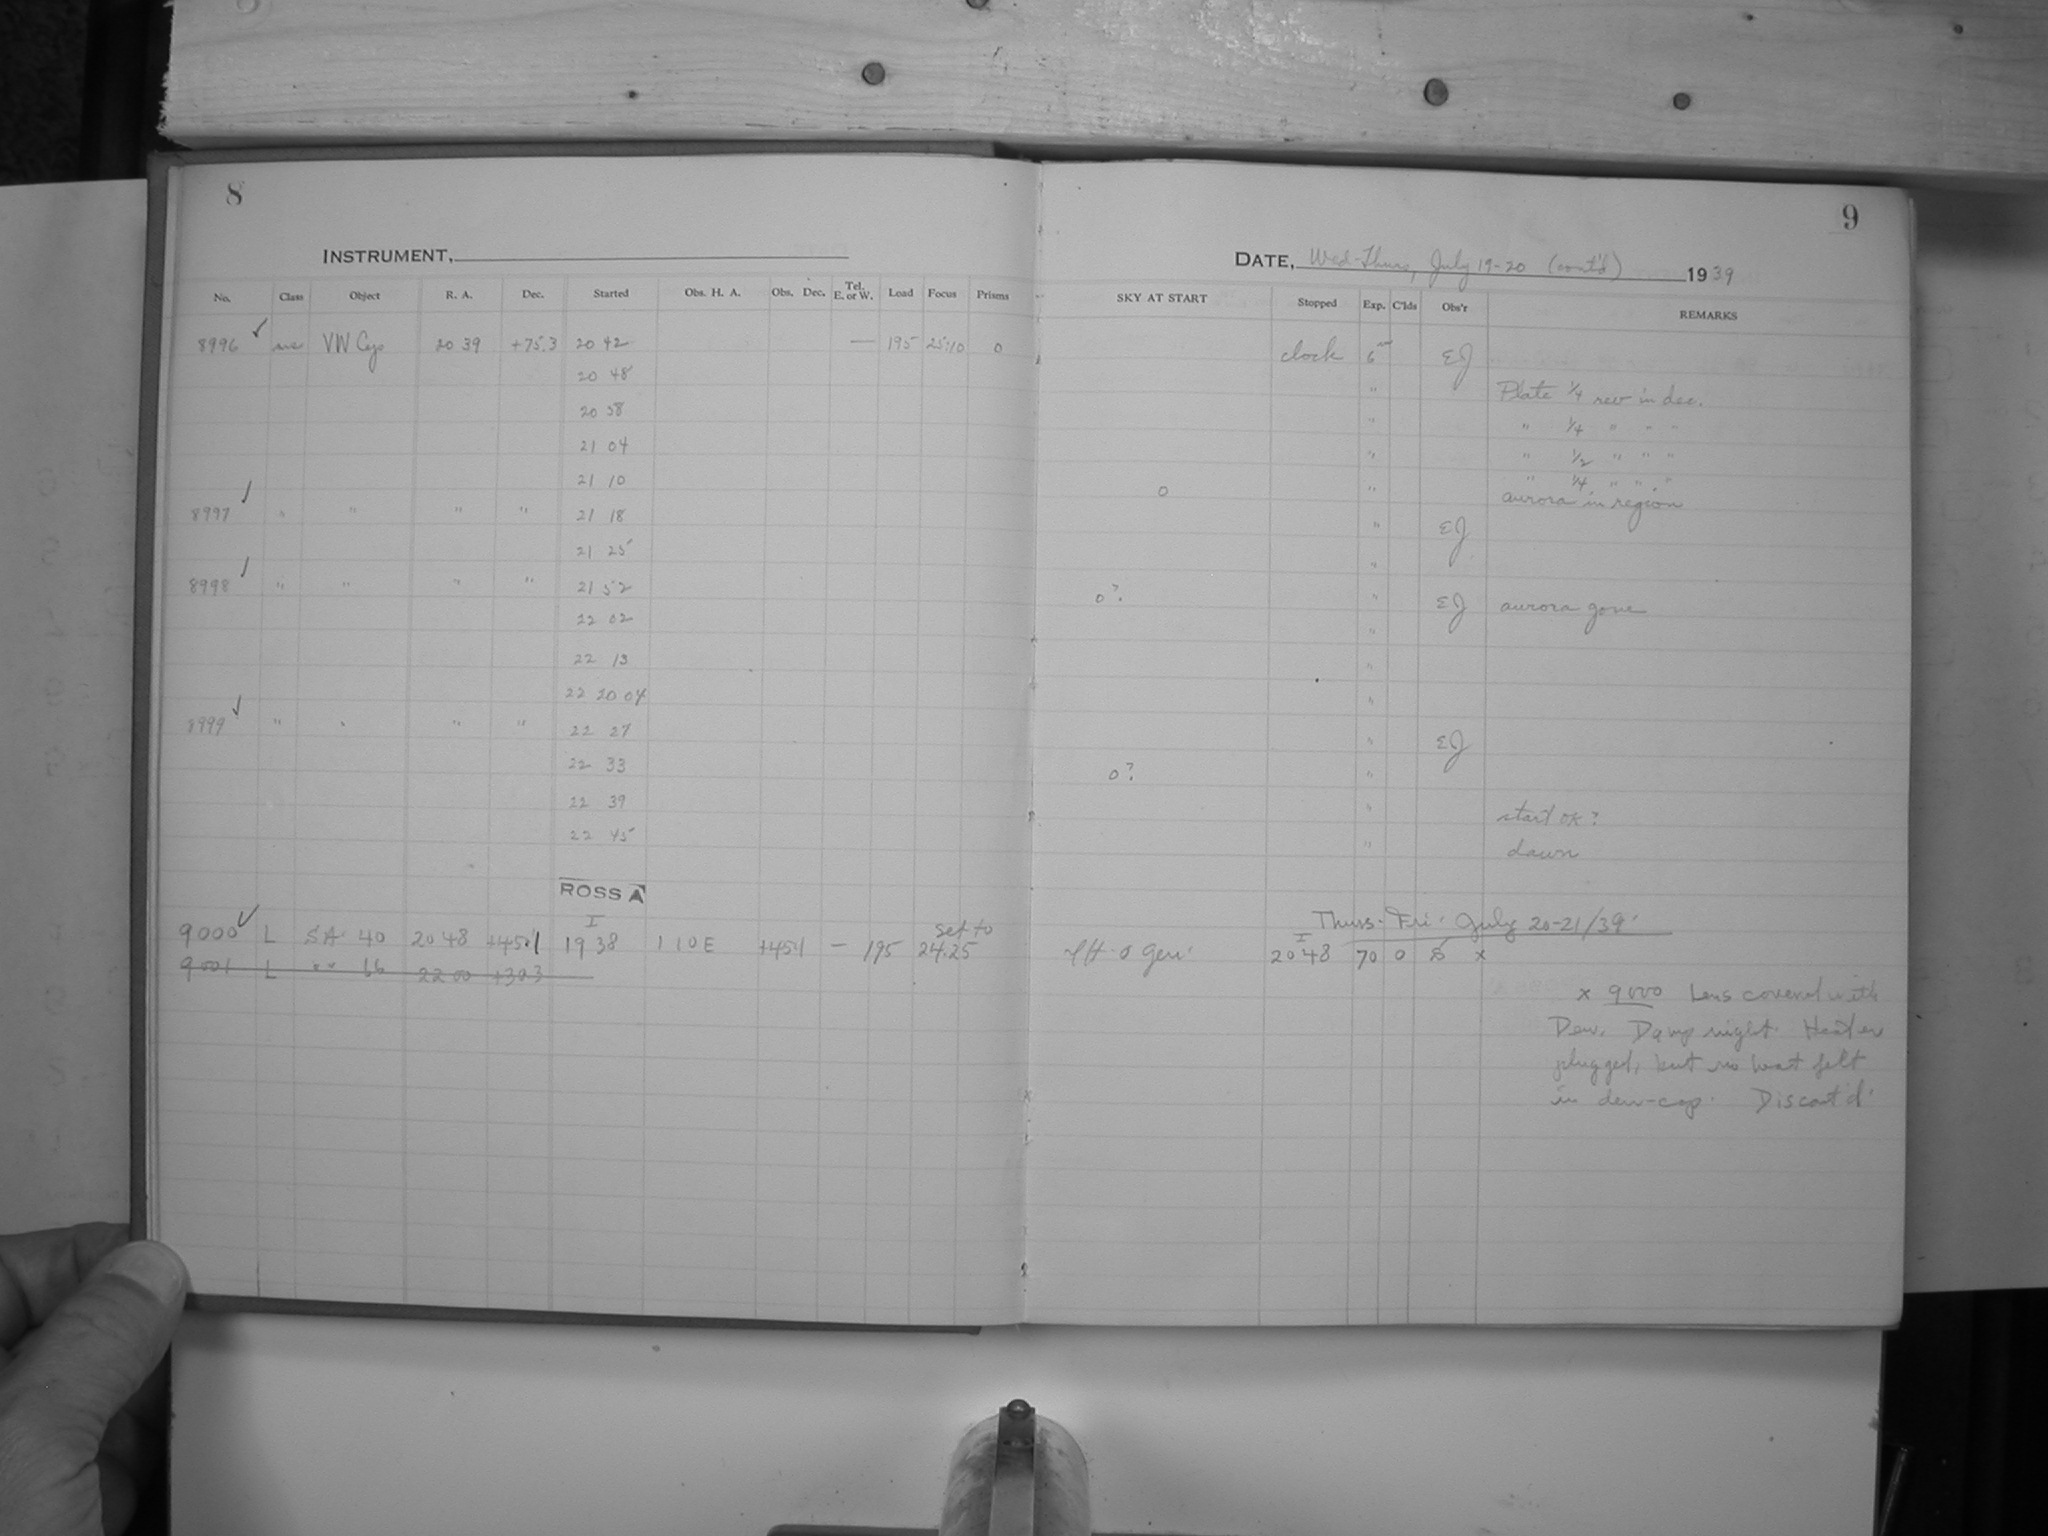 8
INSTRUMENT,
No. Class Object R. A. Dec. Started Obs. H. A. Obs. Dec. Tel. E. or W. Load Focus Prisms
8996 VW Cep 20 39 +75.3 20 42 — 195 25.10 0
20 48
20 58
21 04
21 10
8997 " " " " 21 18
21 25
8998 " " " " 21 52
22 02
22 13
22 20 04
8999 " " " " 22 27
22 33
22 39
22 45
ROSS A
I
9000 L SA 40 20 48 +45.1 19 38 1 10 E +45.1 — 195 set to 24.25
9001 L " " 66 22 00 +30.3
9
DATE, Wed-Thurs, July 19-20 (cont'd) 1939
SKY AT START Stopped Exp. C'lds Obs'r REMARKS
clock 6m EJ
" Plate 1/4 rev in dec.
" " 1/4 " " "
" " 1/2 " " "
" 1/4 " " "
0 " aurora in region
" EJ
"
0? " EJ aurora gone
"
"
"
" EJ
0? "
" start OK?
" dawn
Thurs-Fri July 20-21/39
I
20 48 70 0 x
x 9000 Lens covered with
Dew. Damp night. Heater
plugged, but no heat felt
in dew-cap. Discont'd.